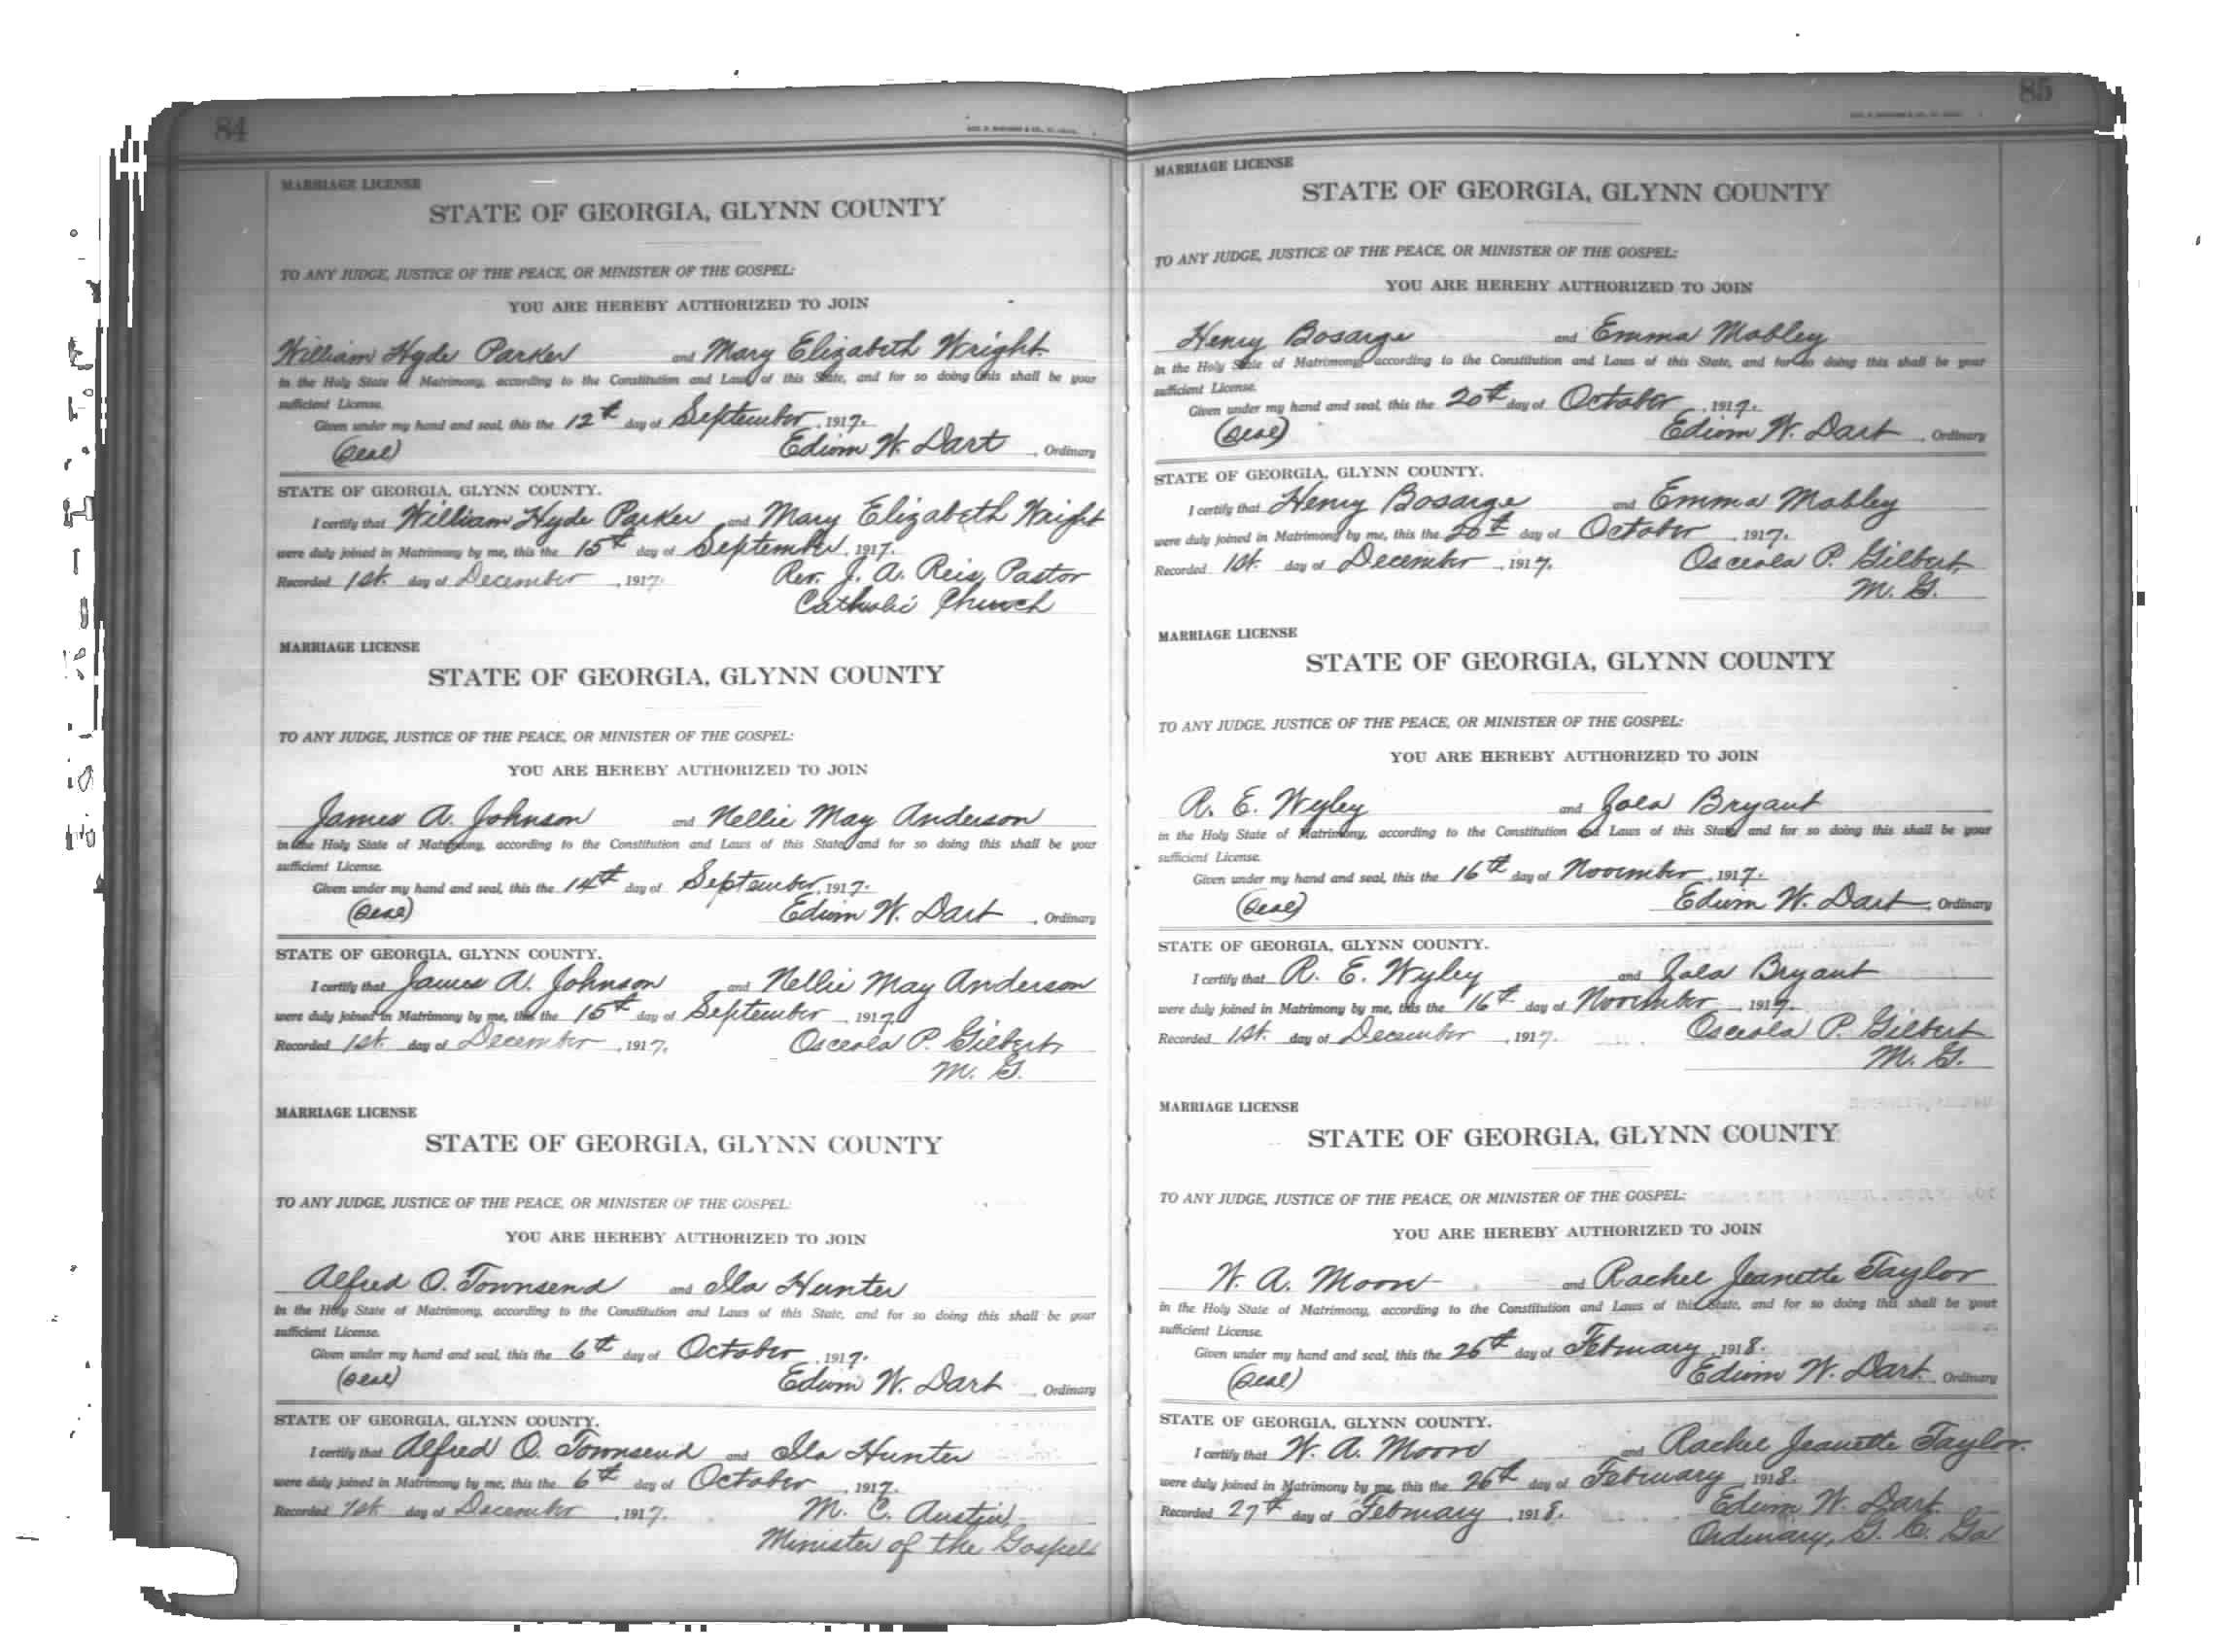 84
MARRIAGE LICENSE
STATE OF GEORGIA, GLYNN COUNTY
TO ANY JUDGE, JUSTICE OF THE PEACE, OR MINISTER OF THE GOSPEL:
YOU ARE HEREBY AUTHORIZED TO JOIN
William Hyde Parker and Mary Elizabeth Wright
in the Holy State of Matrimony, according to the Constitution and Laws of this State, and for so doing this shall be your
sufficient License.
Given under my hand and seal, this the 12th day of September, 1917.
(Seal) Edwin W. Dart, Ordinary
STATE OF GEORGIA, GLYNN COUNTY.
I certify that William Hyde Parker and Mary Elizabeth Wright
were duly joined in Matrimony by me, this the 15th day of September, 1917.
Recorded 1st. day of December, 1917. Rev. J. A. Reis, Pastor
Catholic Church
MARRIAGE LICENSE
STATE OF GEORGIA, GLYNN COUNTY
TO ANY JUDGE, JUSTICE OF THE PEACE, OR MINISTER OF THE GOSPEL:
YOU ARE HEREBY AUTHORIZED TO JOIN
James A. Johnson and Nellie May Anderson
in the Holy State of Matrimony, according to the Constitution and Laws of this State, and for so doing this shall be your
sufficient License.
Given under my hand and seal, this the 14th day of September, 1917.
(Seal) Edwin W. Dart, Ordinary
STATE OF GEORGIA, GLYNN COUNTY.
I certify that James A. Johnson and Nellie May Anderson
were duly joined in Matrimony by me, this the 15th day of September, 1917.
Recorded 1st. day of December, 1917. Osceola P. Gilbert,
M. G.
MARRIAGE LICENSE
STATE OF GEORGIA, GLYNN COUNTY
TO ANY JUDGE, JUSTICE OF THE PEACE, OR MINISTER OF THE GOSPEL:
YOU ARE HEREBY AUTHORIZED TO JOIN
Alfred O. Townsend and Ila Hunter
in the Holy State of Matrimony, according to the Constitution and Laws of this State, and for so doing this shall be your
sufficient License.
Given under my hand and seal, this the 6th day of October, 1917.
(Seal) Edwin W. Dart, Ordinary
STATE OF GEORGIA, GLYNN COUNTY.
I certify that Alfred O. Townsend and Ila Hunter
were duly joined in Matrimony by me, this the 6th day of October, 1917.
Recorded 1st. day of December, 1917. M. C. Austin,
Minister of the Gospel
85
MARRIAGE LICENSE
STATE OF GEORGIA, GLYNN COUNTY
TO ANY JUDGE, JUSTICE OF THE PEACE, OR MINISTER OF THE GOSPEL:
YOU ARE HEREBY AUTHORIZED TO JOIN
Henry Bosarge and Emma Mobley
in the Holy State of Matrimony, according to the Constitution and Laws of this State, and for so doing this shall be your
sufficient License.
Given under my hand and seal, this the 20th day of October, 1917.
(Seal) Edwin W. Dart, Ordinary
STATE OF GEORGIA, GLYNN COUNTY.
I certify that Henry Bosarge and Emma Mobley
were duly joined in Matrimony by me, this the 20th day of October, 1917.
Recorded 1st. day of December, 1917. Osceola P. Gilbert,
M. G.
MARRIAGE LICENSE
STATE OF GEORGIA, GLYNN COUNTY
TO ANY JUDGE, JUSTICE OF THE PEACE, OR MINISTER OF THE GOSPEL:
YOU ARE HEREBY AUTHORIZED TO JOIN
R. E. Wyley and Zola Bryant
in the Holy State of Matrimony, according to the Constitution and Laws of this State, and for so doing this shall be your
sufficient License.
Given under my hand and seal, this the 16th day of November, 1917.
(Seal) Edwin W. Dart, Ordinary
STATE OF GEORGIA, GLYNN COUNTY.
I certify that R. E. Wyley and Zola Bryant
were duly joined in Matrimony by me, this the 16th day of November, 1917.
Recorded 1st. day of December, 1917. Osceola P. Gilbert
M. G.
MARRIAGE LICENSE
STATE OF GEORGIA, GLYNN COUNTY
TO ANY JUDGE, JUSTICE OF THE PEACE, OR MINISTER OF THE GOSPEL:
YOU ARE HEREBY AUTHORIZED TO JOIN
W. A. Moore and Rachel Jeanette Taylor
in the Holy State of Matrimony, according to the Constitution and Laws of this State, and for so doing this shall be your
sufficient License.
Given under my hand and seal, this the 26th day of February, 1918.
(Seal) Edwin W. Dart. Ordinary
STATE OF GEORGIA, GLYNN COUNTY.
I certify that W. A. Moore and Rachel Jeanette Taylor.
were duly joined in Matrimony by me, this the 26th day of February, 1918.
Recorded 27th day of February, 1918. Edwin W. Dart.
Ordinary, G. C. Ga